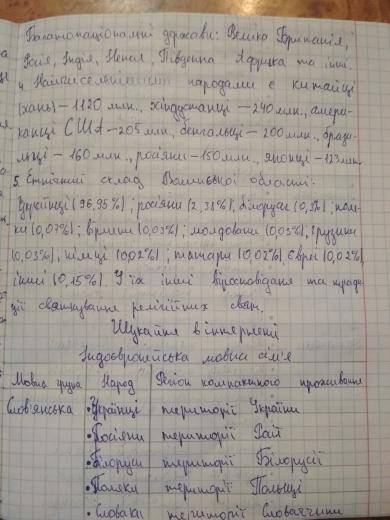 Багатонаціональні держави: Велика Британія,
Росія, Індія, Непал, Південна Африка та інші.
4. Найчисельнішими народами є китайці
(хань) – 1120 млн., хіндустанці – 240 млн., амери-
канці США – 205 млн., бенгальці – 200 млн., брази-
льці – 160 млн., росіяни – 150 млн., японці – 123 млн.
5. Етнічний склад Волинської області:
Українці (96,95%); росіяни (2,38%), білоруси (0,3%); поля-
ки (0,07%); вірмени (0,03%); молдовани (0,03%), грузини
(0,03%), німці (0,02%); татари (0,02%) Євреї (0,02%)
інші (0,15%). У їх інші віросповідання та тради-
ції святкування релігійних свят.
Шукайте в інтернеті
Індоєвропейська мовна сім'я
Мовна група Народ Регіон компактного проживання
Слов'янська • Українці території України
• Росіяни території
• Білоруси території Білорусії
• Поляки території Польщі
• Словаки території Словаччини